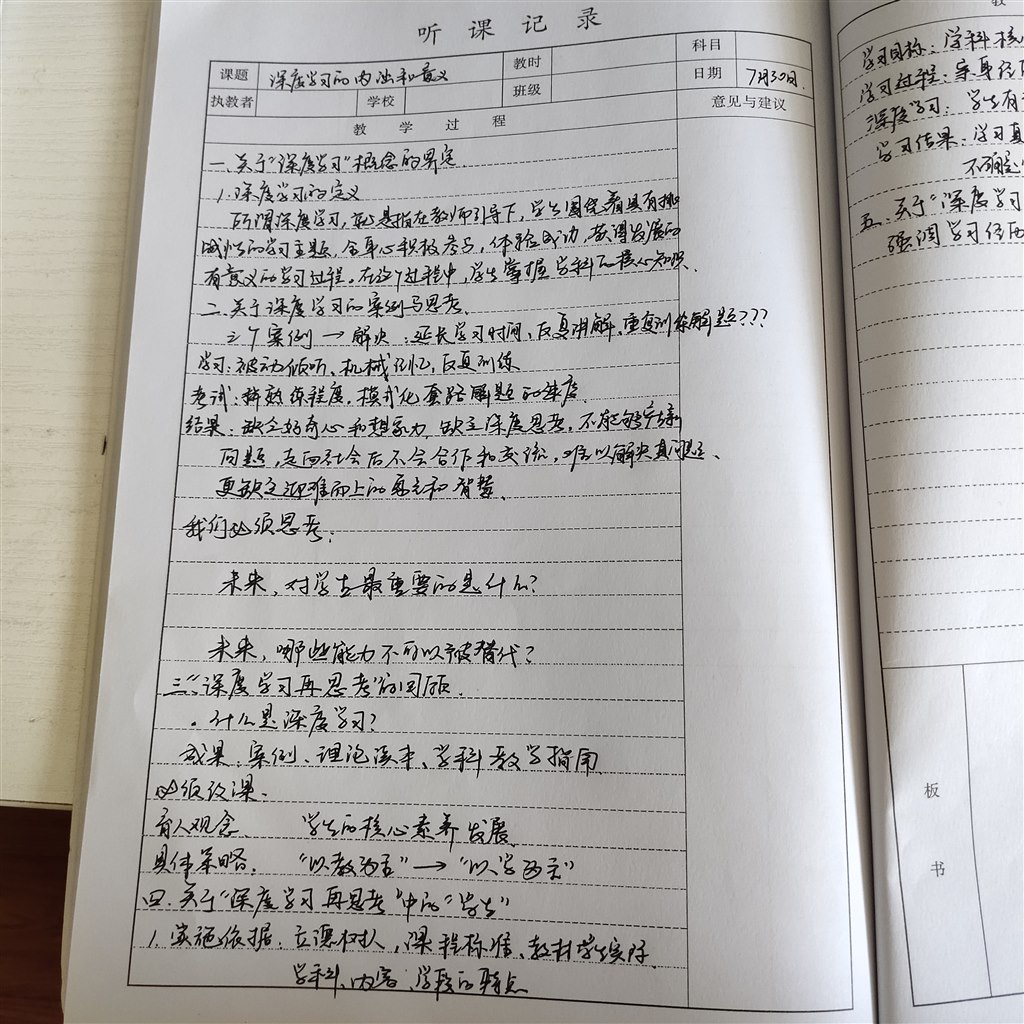 听课记录
课题 深度学习的内涵和意义 教时 科目
执教者 学校 班级 日期 7月30日.
教学过程 意见与建议
一.关于“深度学习”概念的界定.
1.深度学习的定义
所谓深度学习,就是指在教师引导下,学生围绕着具有挑
战性的学习主题,全身心积极参与,体验成功,获得发展的
有意义的学习过程.在这个过程中,学生掌握学科的核心知识、
二.关于深度学习的案例与思考.
三个案例→解决:延长学习时间、反复讲解、重复训练解题???
学习:被动倾听、机械记忆,反复训练
考试:拼熟练程度,模式化套路解题的速度.
结果:缺乏好奇心和想象力,缺乏深度思考,不能够产生新
问题,走向社会后不会合作和交流,难以解决真问题、
更缺乏迎难而上的意志和智慧.
我们必须思考:
未来,对学生最重要的是什么?
未来,哪些能力不可以被替代?
三.“深度学习再思考”的回顾.
.什么是深度学习?
成果:案例、理论读本、学科教学指南
必须改课.
育人观念. 学生的核心素养发展.
具体策略. “以教为主”→“以学为主”
四.关于“深度学习再思考”中的“学生”
1.实施依据.立德树人,课程标准、教材学生实际.
学科、内容、学段的特点
教
学习目标:学科核
学习过程:亲身经历
深度学习:学生有
学习结果:学习真
五.关于“深度学习
强调学习经历
板
书